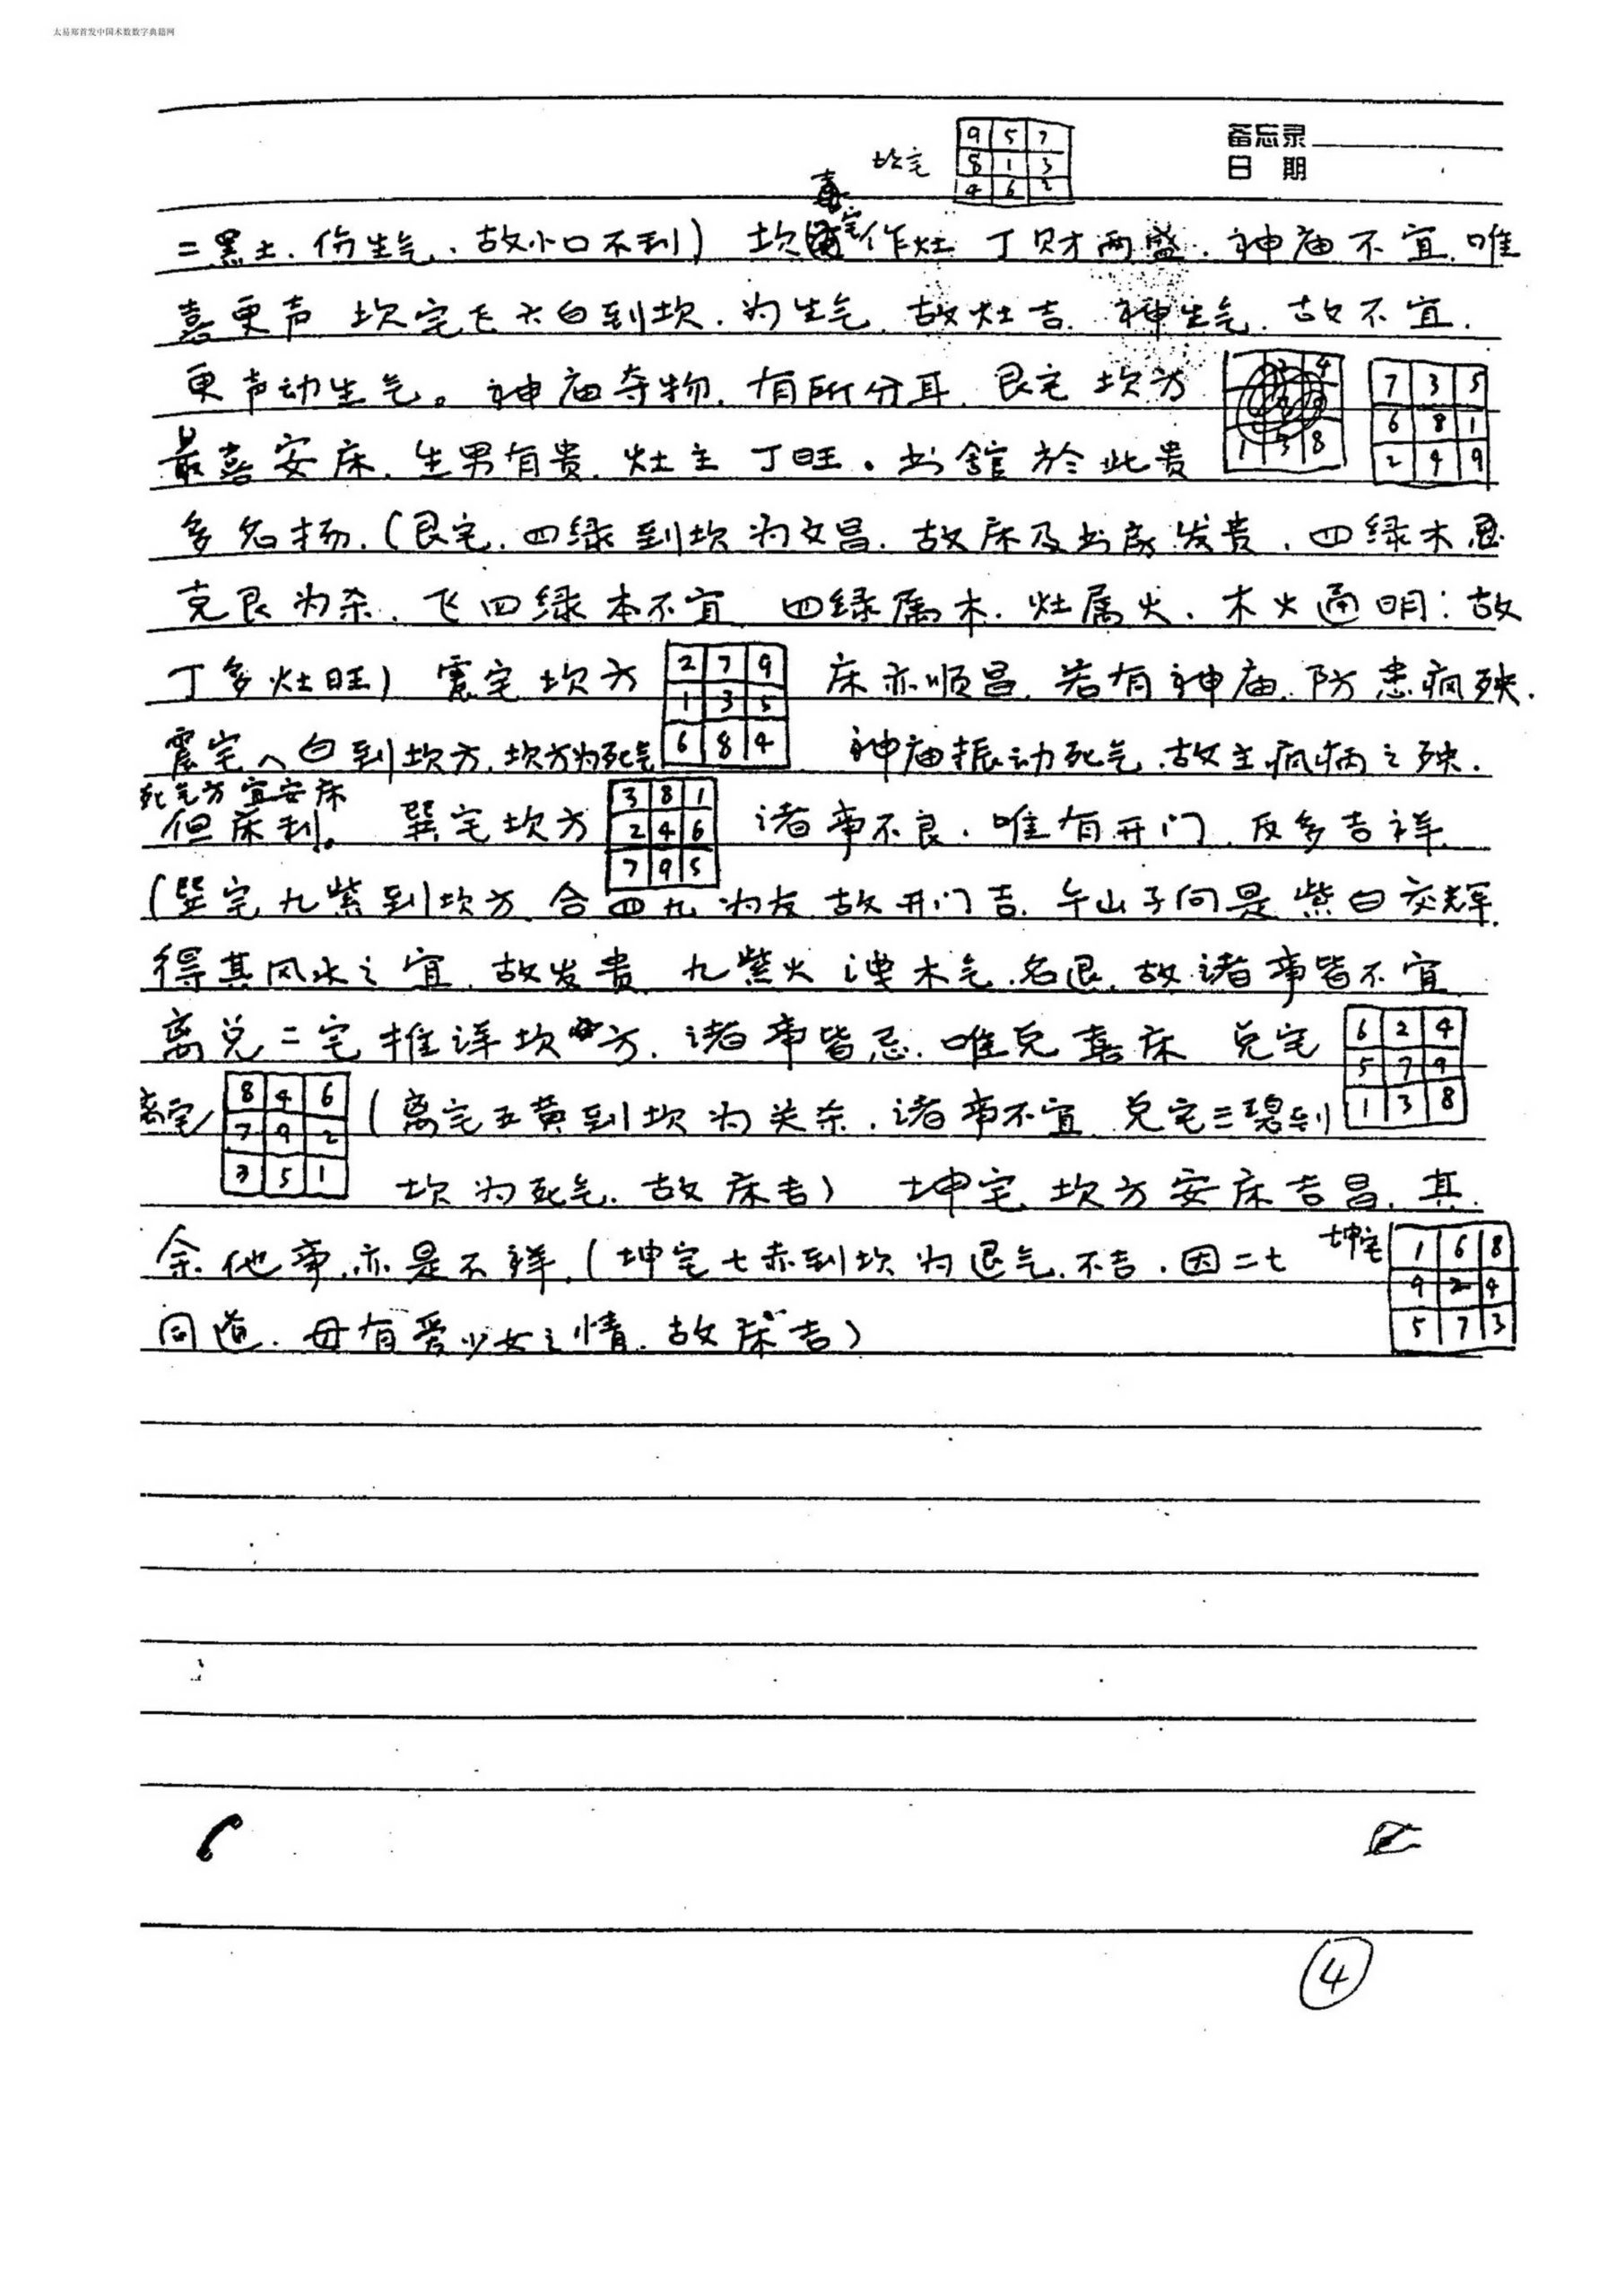 太易郑首发中国术数数字典籍网
备忘录
日 期
坎宅
9 5 7
8 1 3
4 6 2
二黑土.伤生气.故小口不利) 坎宅作灶 丁财两盛.神庙不宜.唯
喜更声 坎宅飞六白到坎.为生气.故灶吉.神生气.故不宜.
更声动生气。神庙夺物.有所分耳.艮宅坎方
4
1 3 8
7 3 5
6 8 1
2 4 9
最喜安床.生男有贵.灶主丁旺。书馆於此贵
多名扬.(艮宅.四绿到坎为文昌.故床及书房发贵.四绿木
克艮为杀.飞四绿本不宜 四绿属木.灶属火.木火通明:故
丁多灶旺) 震宅坎方
2 7 9
1 3 5
6 8 4
床亦顺昌.若有神庙.防患疯殃.
震宅八白到坎方.坎方为死气 神庙振动死气.故主疯病之殃.
死气方宜安床
但床利。 巽宅坎方
3 8 1
2 4 6
7 9 5
诸事不良.唯有开门.反多吉祥.
(巽宅九紫到坎方.合四九为友.故开门吉.午山子向是紫白交辉.
得其风水之宜.故发贵.九紫火洩木气.名退.故诸事皆不宜
离兑二宅推详坎方.诸事皆忌.唯兑喜床 兑宅
6 2 4
5 7 9
1 3 8
离宅
8 4 6
7 9 2
3 5 1
(离宅五黄到坎为关杀.诸事不宜.兑宅三碧到
坎为死气.故床吉) 坤宅坎方安床吉昌.其
余他事.亦是不祥.(坤宅七赤到坎为退气.不吉.因二七
坤宅
1 6 8
9 2 4
5 7 3
同道.母有爱少女之情.故床吉)
4